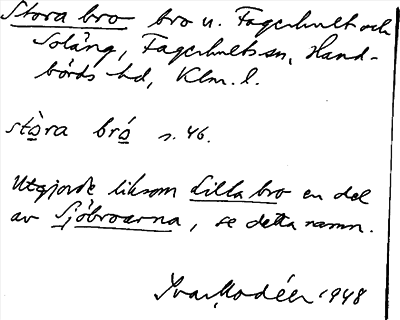 Stora bro bro u. Fagerhult och
Soläng, Fagerhults sn, Hand-
börds hd, Klm. l.
stòra bró s. 46.
Utgjorde liksom Lilla bro en del
av Sjöbroarna, se detta namn.
Ivar Modéer 1948